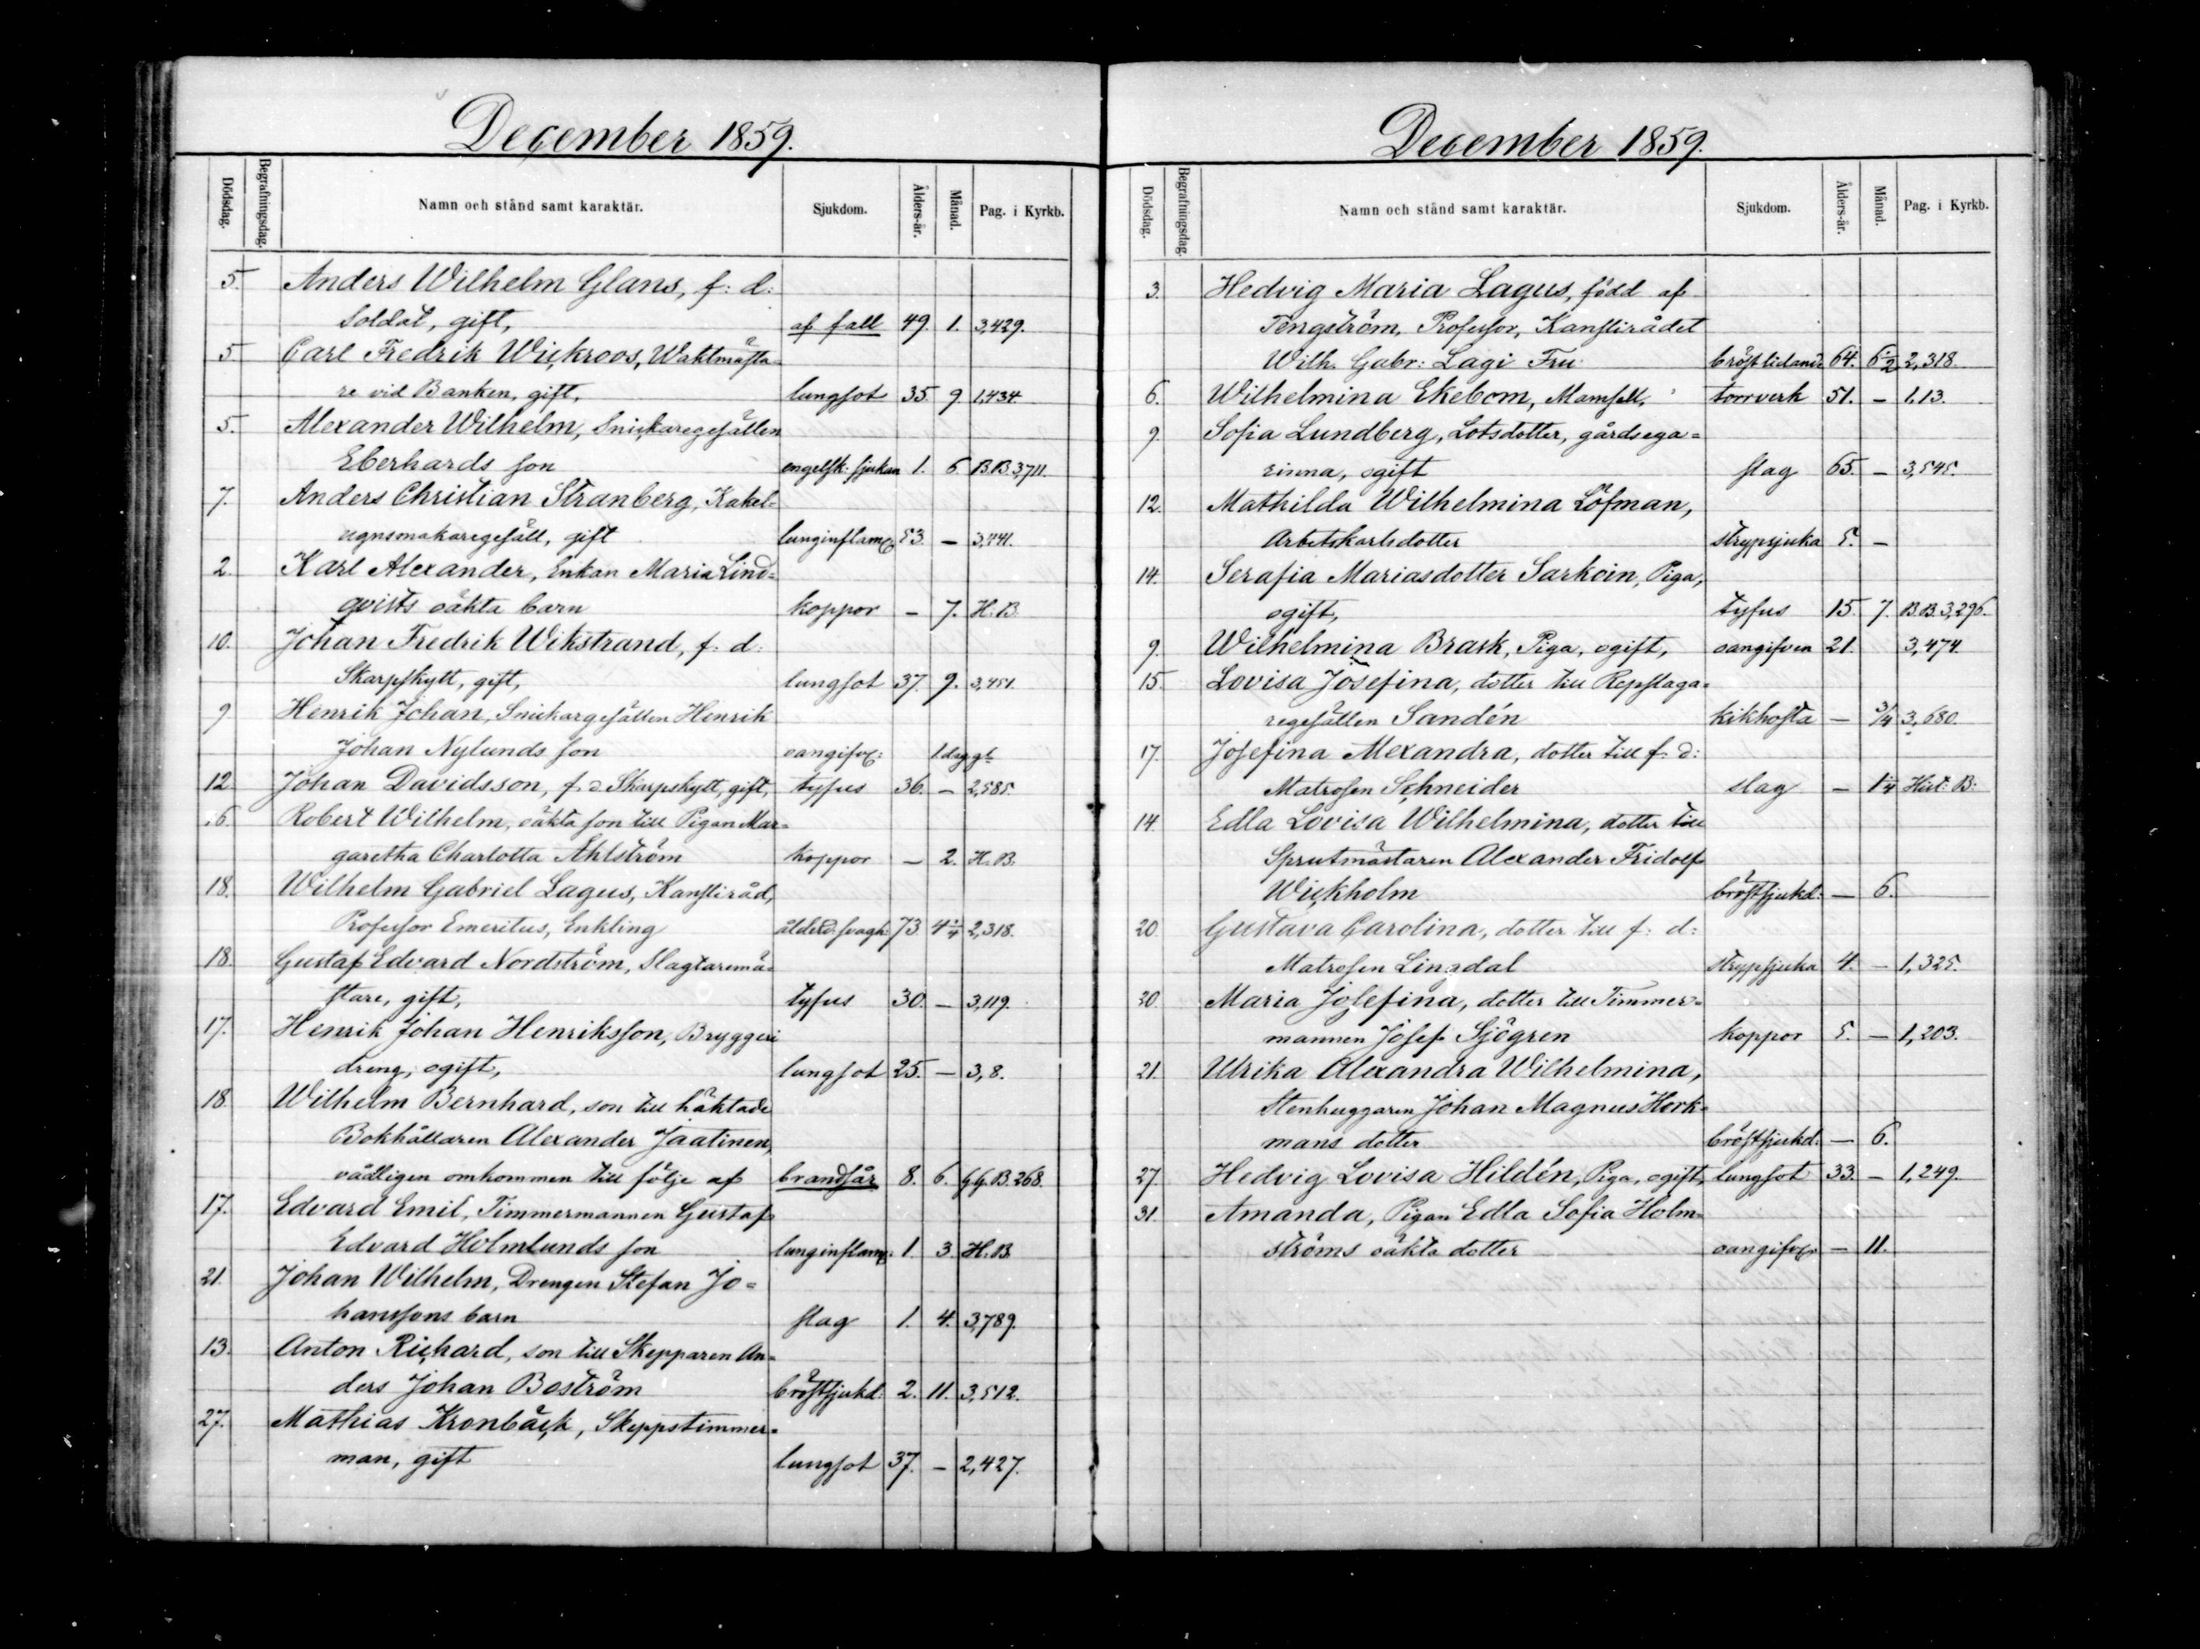 December 1859.
Dödsdag. Begrafningsdag. Namn och stånd samt karaktär. Sjukdom. Ålders-år. Månad. Pag. i Kyrkb.
5. Anders Wilhelm Glans, f: d:
Soldat, gift, af fall 49. 1. 3,429.
5 Carl Fredrik Wickroos, Waktmästa-
re vid Banken, gift, lungsot 35 9 1,434.
5. Alexander Wilhelm, Snickaregesällen
Eberhards son engelsk: sjukan 1. 6 B.B. 3,711.
7. Anders Christian Stranberg, Kakel-
ugnsmakaregesäll, gift lunginflam: 53. — 3,441.
2. Karl Alexander, Enkan Maria Lind-
qvists oäkta barn koppor — 7. H. B
10. Johan Fredrik Wikstrand, f: d:
Skarpskytt, gift, lungsot 37. 9. 3,451.
9 Henrik Johan, Snickargesällen Henrik
Johan Nylunds son oangifv: 1 dag gl.
12 Johan Davidsson, f. d Skarpskytt, gift, tyfus 36. — 2,585.
.6. Robert Wilhelm, oäkta son till Pigan Mar-
garetha Charlotta Ahlström koppor — 2. H. B.
18. Wilhelm Gabriel Lagus, Kansliråd,
Professor Emeritus, Enkling ålderd. svagh: 73 4 1/4 2,318.
18. Gustaf Edvard Nordström, Slagtaremä-
stare, gift, tyfus 30. — 3,119.
17. Henrik Johan Henriksson, Bryggeri
dreng, ogift, lungsot 25. — 3,8.
18 Wilhelm Bernhard, son till häktade
Bokhållaren Alexander Jaatinen,
vådligen omkommen till följe af brandsår 8. 6. G.G.B. 268.
17. Edvard Emil, Timmermannen Gustaf
Edvard Holmlunds son lunginflam: 1. 3. H. B
21. Johan Wilhelm, Drengen Stefan Jo-
hanssons barn slag 1. 4. 3,789.
13. Anton Richard, son till Skepparen An-
ders Johan Boström bröstsjukd: 2. 11. 3,512.
27. Mathias Kronbäck, Skeppstimmer-
man, gift lungsot 37. — 2,427.
December 1859.
Dödsdag. Begrafningsdag. Namn och stånd samt karaktär. Sjukdom. Ålders-år. Månad. Pag. i Kyrkb.
3. Hedvig Maria Lagus, född af
Tengström, Professor, Kanslirådet
Wilh. Gabr: Lagi Fru bröstlidand. 64. 6 1/2 2,318.
6. Wilhelmina Ekebom, Mamsell, torrverk 51. — 1,13.
9. Sofia Lundberg, Lotsdotter, gårdsega-
rinna, ogift slag 65. — 3,545.
12. Mathilda Wilhelmina Löfman,
Arbetskarlsdotter strypsjuka 5. —
14. Serafia Mariasdotter Sarkoin, Piga,
ogift, tyfus 15. 7. B.B. 3,296.
9. Wilhelmina Brask, Piga, ogift, oangifven 21. 3,474.
15. Lovisa Josefina, dotter till Repslaga-
regesällen Sandén kikhosta — 3/4 3,680.
17. Josefina Alexandra, dotter till f: d:
Matrosen Schneider slag — 1 1/4 Häst. B:
14. Edla Lovisa Wilhelmina, dotter till
Sprutmästaren Alexander Fridolf
Wickholm bröstsjukd: — 6.
20. Gustava Carolina, dotter till f: d:
Matrosen Lindal strypsjuka 4. — 1,325.
20. Maria Josefina, dotter till Timmer-
mannen Josef Sjögren koppor 5. — 1,203.
21. Ulrika Alexandra Wilhelmina,
Stenhuggaren Johan Magnus Hork-
mans dotter bröstsjukd: — 6.
27. Hedvig Lovisa Hildén, Piga, ogift, lungsot 33. — 1,249.
31. Amanda, Pigan Edla Sofia Holm-
ströms oäkta dotter oangifv: — 11.